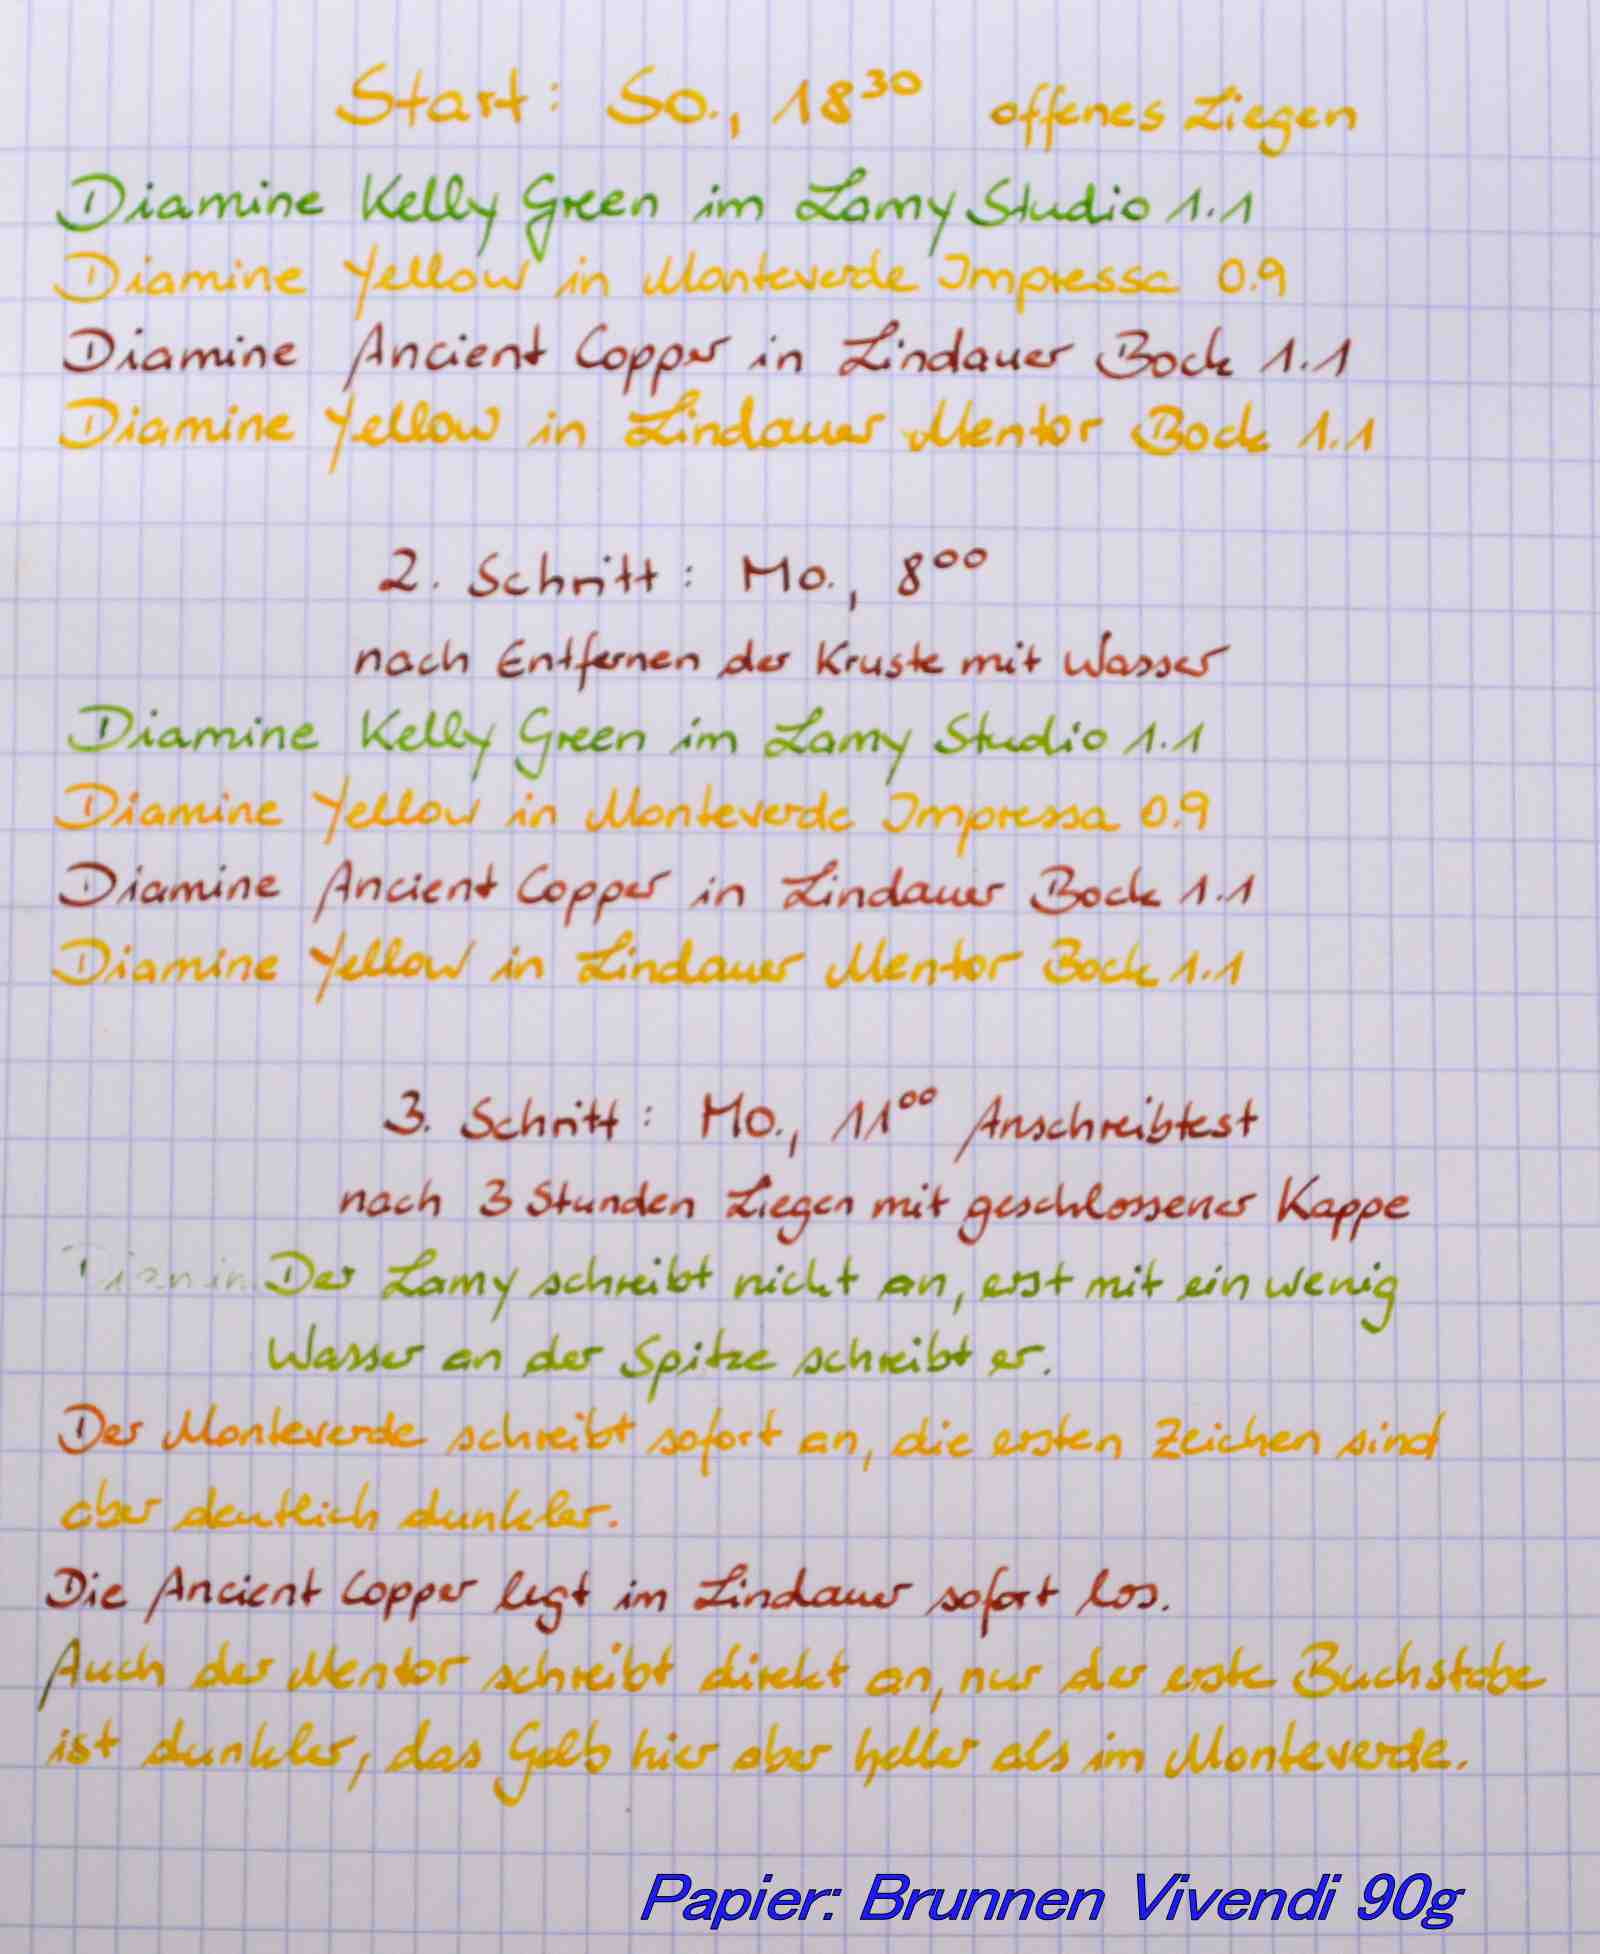 Start: So., 18³⁰ offenes Liegen
Diamine Kelly Green im Lamy Studio 1.1
Diamine Yellow in Monteverde Impressa 0.9
Diamine Ancient Copper in Lindauer Bock 1.1
Diamine Yellow in Lindauer Mentor Bock 1.1
2. Schritt: Mo., 8⁰⁰
nach Entfernen der Kruste mit Wasser
Diamine Kelly Green im Lamy Studio 1.1
Diamine Yellow in Monteverde Impressa 0.9
Diamine Ancient Copper in Lindauer Bock 1.1
Diamine Yellow in Lindauer Mentor Bock 1.1
3. Schritt: Mo., 11⁰⁰ Anschreibtest
nach 3 Stunden Liegen mit geschlossener Kappe
Diamin Der Lamy schreibt nicht an, erst mit ein wenig
Wasser an der Spitze schreibt er.
Der Monteverde schreibt sofort an, die ersten Zeichen sind
aber deutlich dunkler.
Die Ancient Copper legt im Lindauer sofort los.
Auch der Mentor schreibt direkt an, nur der erste Buchstabe
ist dunkler, das Gelb hier aber heller als im Monteverde.
Papier: Brunnen Vivendi 90g